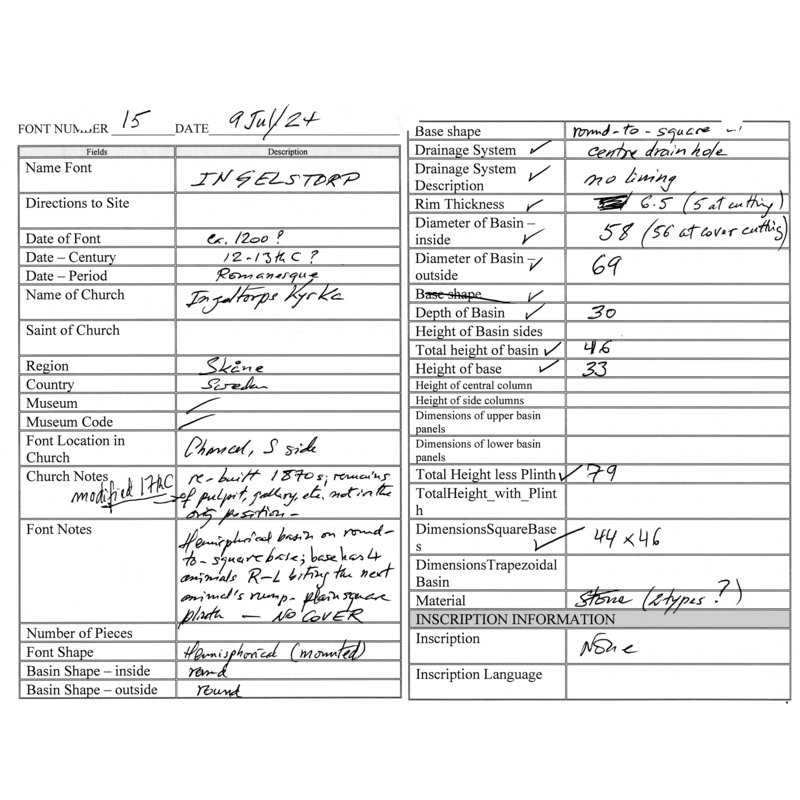 FONT NUMBER 15 DATE 9 Jul/24
Fields Description
Name Font INGELSTORP
Directions to Site
Date of Font ca. 1200?
Date – Century 12-13th C?
Date – Period Romanesque
Name of Church Ingeltorps Kyrka
Saint of Church
Region Skåne
Country Sweden
Museum
Museum Code
Font Location in
Church Chancel, S side
Church Notes re-built 1870s; remains
modified 17thC of pulpit, gallery, etc. not in the
orig position -
Font Notes Hemispherical basin on round-
to-square base; base has 4
animals R-L biting the next
animal's rump - plain square
plinth — NO COVER
Number of Pieces
Font Shape Hemispherical (mounted)
Basin Shape – inside round
Basin Shape – outside round
Base shape round-to-square
Drainage System ✓ centre drain hole
Drainage System
Description ✓ no lining
Rim Thickness ✓ 6.5 (5 at cutting)
Diameter of Basin –
inside ✓ 58 (56 at cover cutting)
Diameter of Basin –
outside ✓ 69
Base shape ✓
Depth of Basin ✓ 30
Height of Basin sides
Total height of basin ✓ 46
Height of base ✓ 33
Height of central column
Height of side columns
Dimensions of upper basin
panels
Dimensions of lower basin
panels
Total Height less Plinth ✓ 79
TotalHeight_with_Plint
h
DimensionsSquareBase
s ✓ 44 x 46
DimensionsTrapezoidal
Basin
Material Stone (2 types?)
INSCRIPTION INFORMATION
Inscription None
Inscription Language